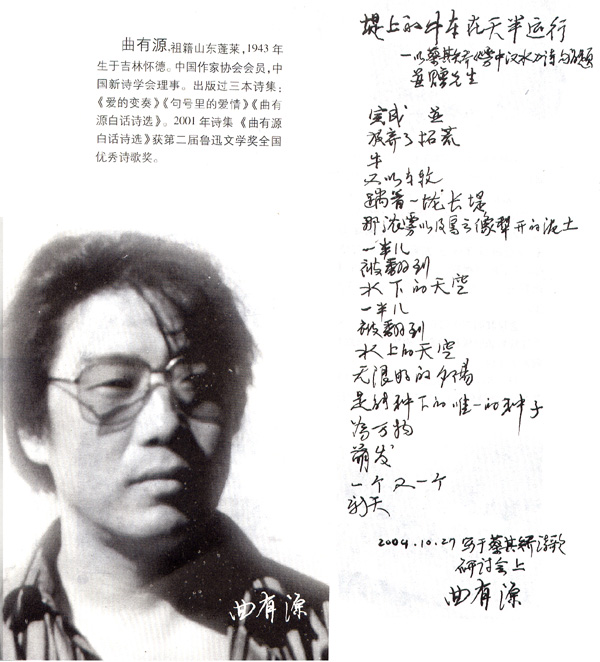 曲有源,祖籍山东蓬莱,1943 年
生于吉林怀德。中国作家协会会员,中
国新诗学会理事。出版过三本诗集:
《爱的变奏》《句号里的爱情》《曲有
源白话诗选》。2001 年诗集《曲有源
白话诗选》获第二届鲁迅文学奖全国
优秀诗歌奖。
曲有源
堤上的牛车在天半运行
—以蔡其矫《雾中汉水》诗句为题
并赠先生
完成 并
放弃了拓荒
牛
又以
蹚着一垅长堤
那浓雾以及乌云像犁开的泥土
一半儿
被翻到
水下的天空
一半儿
被翻到
水上的天空
无限好的夕阳
是能种下的唯一的种子
为万物
萌发
一个又一个
明天
2004.10.27 写于蔡其矫诗歌
研讨会上
曲有源